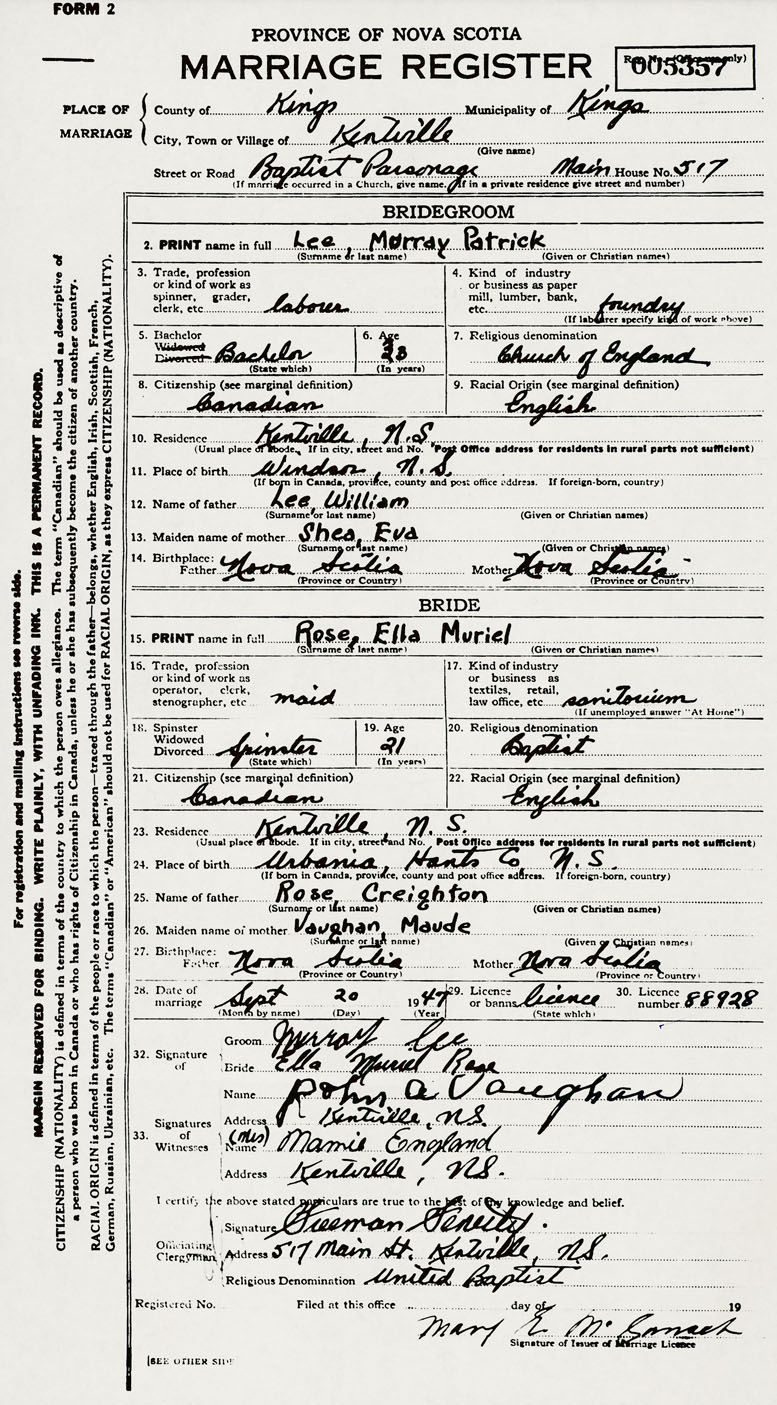 FORM 2
PROVINCE OF NOVA SCOTIA
MARRIAGE REGISTER
005357
PLACE OF MARRIAGE
County of Kings Municipality of Kings
City, Town or Village of Kentville
(Give name)
Street or Road Baptist Parsonage Main House No. 517
(If marriage occurred in a Church, give name. If in a private residence give street and number)
BRIDEGROOM
2. PRINT name in full Lee, Murray Patrick
(Surname or last name) (Given or Christian names)
3. Trade, profession or kind of work as spinner, grader, clerk, etc labourer
4. Kind of industry or business as paper mill, lumber, bank, etc. foundry
(If labourer specify kind of work above)
5. Bachelor Widowed Divorced Bachelor
(State which)
6. Age 23
(In years)
7. Religious denomination
Church of England
8. Citizenship (see marginal definition)
Canadian
9. Racial Origin (see marginal definition)
English
10. Residence Kentville, N.S.
(Usual place of abode. If in city, street and No. Post Office address for residents in rural parts not sufficient)
11. Place of birth Windsor, N.S.
(If born in Canada, province, county and post office address. If foreign-born, country)
12. Name of father Lee, William
(Surname or last name) (Given or Christian names)
13. Maiden name of mother Shea, Eva
(Surname or last name) (Given or Christian names)
14. Birthplace: Father Nova Scotia Mother Nova Scotia
(Province or Country) (Province or Country)
BRIDE
15. PRINT name in full Rose, Ella Muriel
(Surname of last name) (Given or Christian names)
16. Trade, profession or kind of work as operator, clerk, stenographer, etc maid
17. Kind of industry or business as textiles, retail, law office, etc. sanitorium
(If unemployed answer "At Home")
18. Spinster Widowed Divorced Spinster
(State which)
19. Age 21
(In years)
20. Religious denomination
Baptist
21. Citizenship (see marginal definition)
Canadian
22. Racial Origin (see marginal definition)
English
23. Residence Kentville, N.S.
(Usual place of abode. If in city, street and No. Post Office address for residents in rural parts not sufficient)
24. Place of birth Urbania, Hants Co, N.S.
(If born in Canada, province, county and post office address. If foreign-born, country)
25. Name of father Rose, Creighton
(Surname or last name) (Given or Christian names)
26. Maiden name of mother Vaughan, Maude
(Surname or last name) (Given or Christian names)
27. Birthplace: Father Nova Scotia Mother Nova Scotia
(Province or Country) (Province or Country)
28. Date of marriage Sept 20 1947
(Month by name) (Day) (Year)
29. Licence or banns licence
(State which)
30. Licence number 88928
32. Signature of
Groom Murray Lee
Bride Ella Muriel Rose
33. Signatures of Witnesses
Name John A Vaughan
Address Kentville, NS.
(Mrs) Name Mamie England
Address Kentville, NS.
I certify the above stated particulars are true to the best of my knowledge and belief.
Officiating Clergyman
Signature Freeman Fenerty.
Address 517 Main St. Kentville, NS.
Religious Denomination United Baptist
Registered No. Filed at this office day of 19
Mary E.
Signature of Issuer of Marriage Licence
[SEE OTHER SIDE
For registration and mailing instructions see reverse side.
MARGIN RESERVED FOR BINDING. WRITE PLAINLY, WITH UNFADING INK. THIS IS A PERMANENT RECORD.
CITIZENSHIP (NATIONALITY) is defined in terms of the country to which the person owes allegiance. The term "Canadian" should be used as descriptive of
a person who was born in Canada or who has rights of Citizenship in Canada, unless he or she has subsequently become the citizen of another country.
RACIAL ORIGIN is defined in terms of the people or race to which the person—traced through the father—belongs, whether English, Irish, Scottish, French,
German, Russian, Ukrainian, etc. The terms "Canadian" or "American" should not be used for RACIAL ORIGIN, as they express CITIZENSHIP (NATIONALITY).